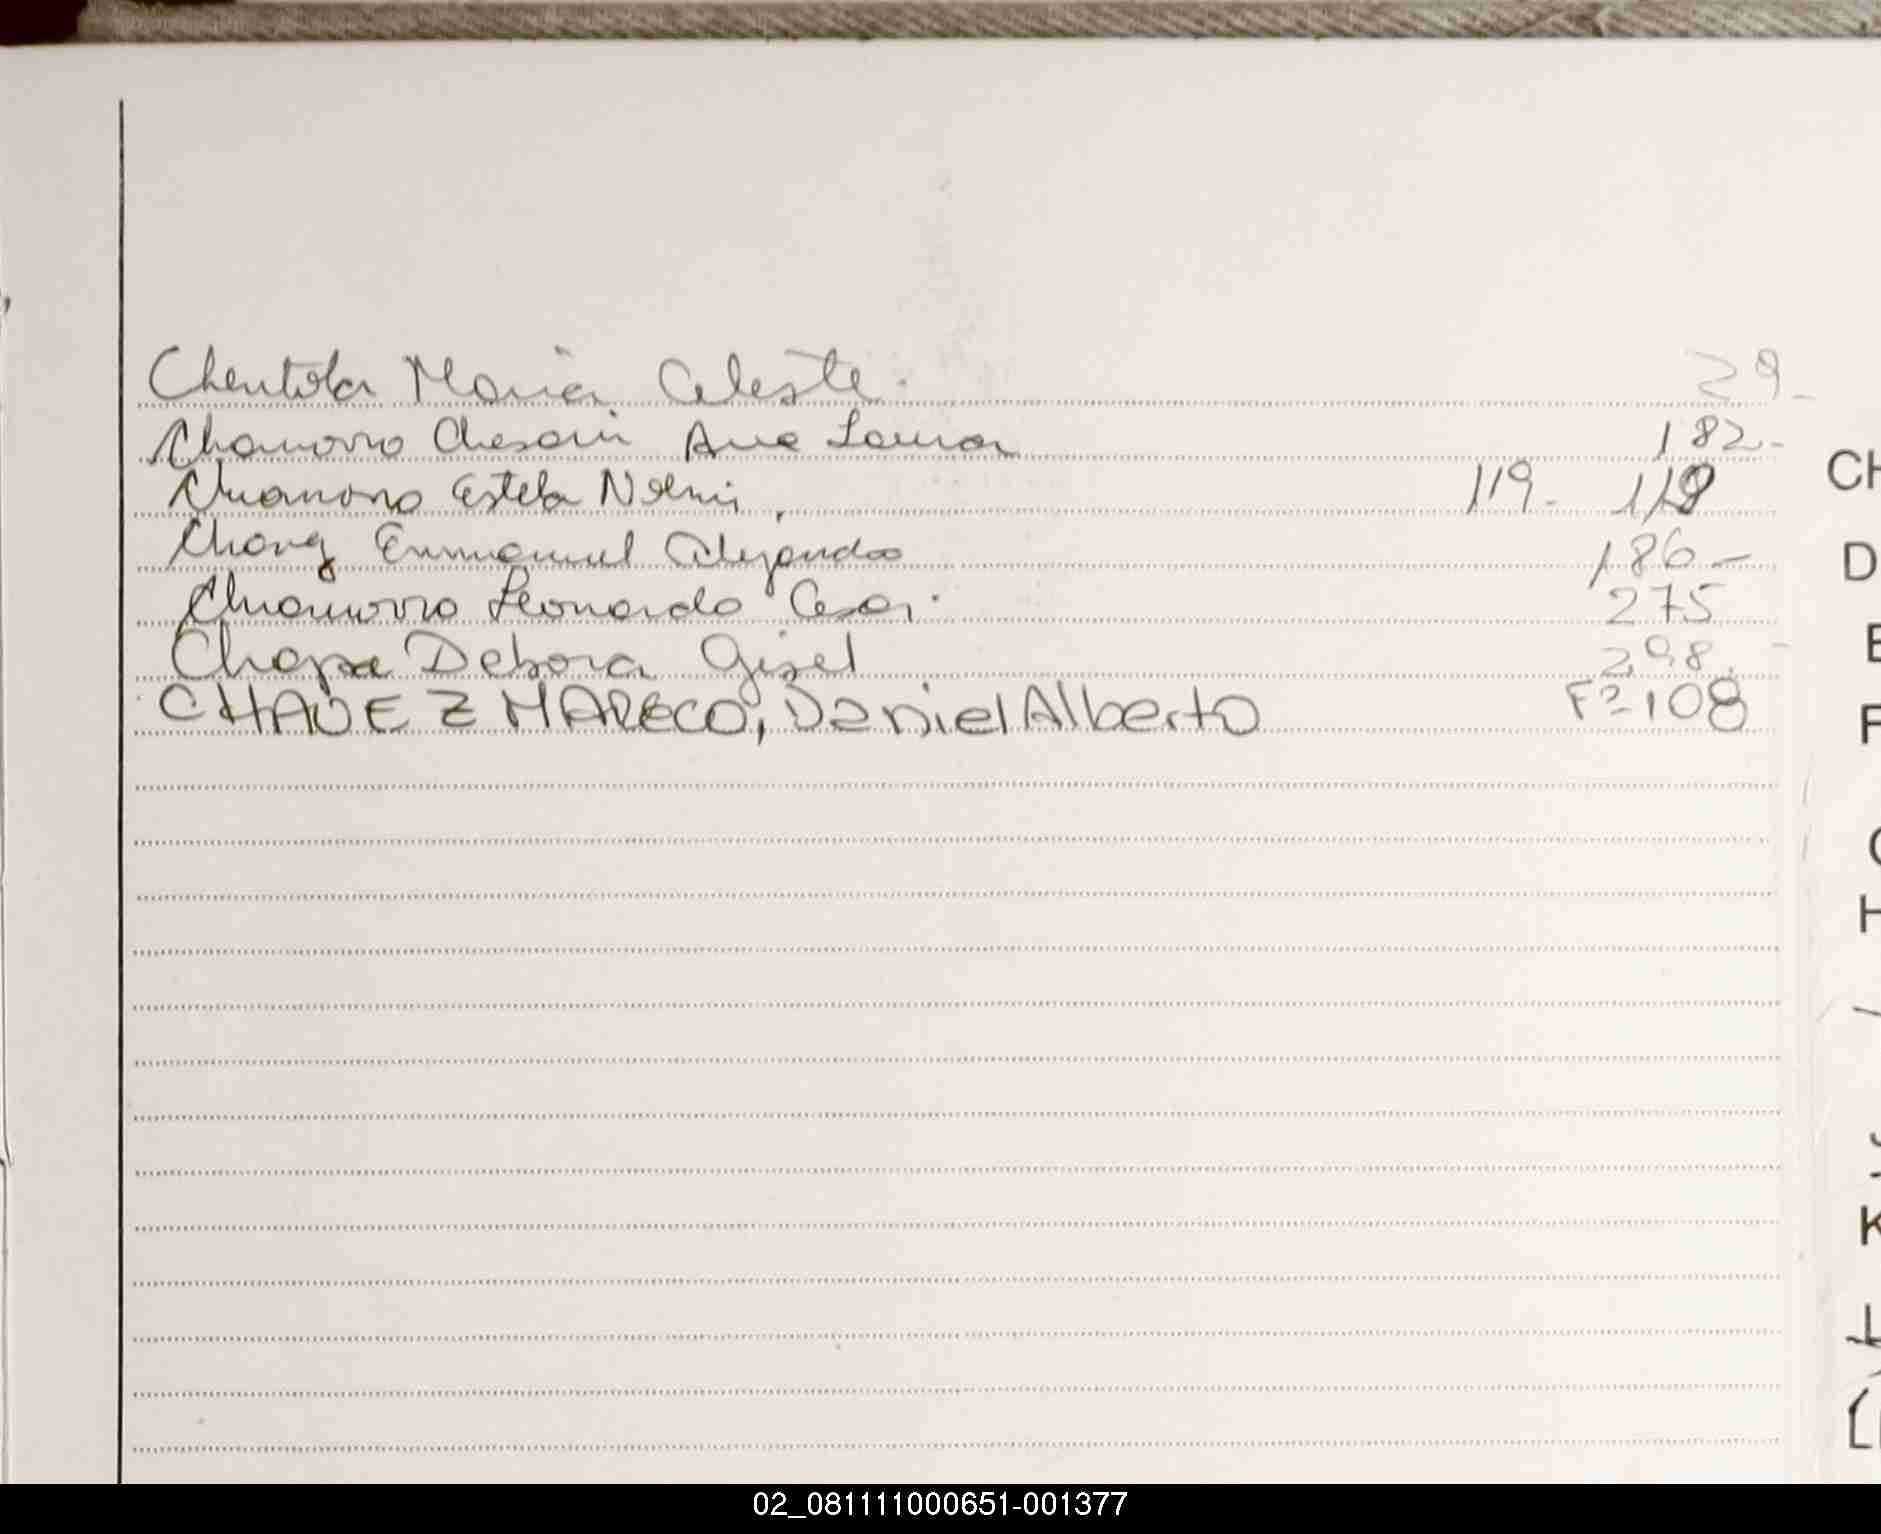 Chentola Maria Celeste. 29-
Chamorro Chesani Ana Laura 182-
Chamorro Estela Noemi, 119- 119
Chang Emmanuel Alejandro 186-
Chamorro Leonardo Cesar. 275
Chapa Debora Gisel 298.-
CHAVEZ MARECO, Daniel Alberto Fº 108
CH
D
E
F
G
H
J
K
L
02_081111000651-001377